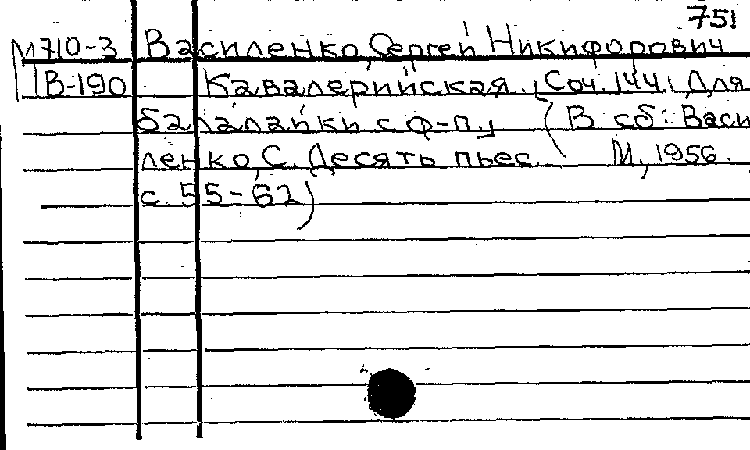 751
М710-3 Василенко, Сергей Никифорович
В-190 Кавалерийская. Соч. 144. Для
балалайки с ф-п. (В сб: Васи
ленко, С. Десять пьес. М, 1956.
с. 55-62)